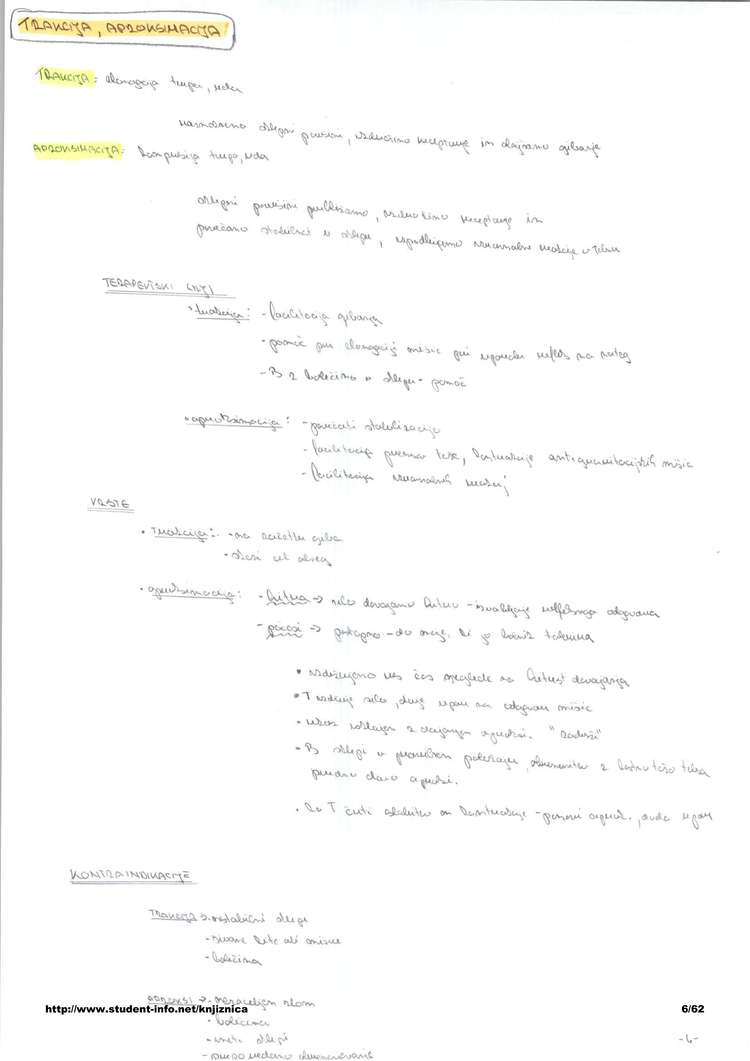 TRAKCIJA, APROKSIMACIJA
TRAKCIJA: elongacija trupa, uda
razmaknemo sklepni površini, vzdražimo receptorje in olajšamo gibanje
APROKSIMACIJA: kompresija trupa, uda
sklepni površini približamo, vzdražimo receptorje in
povečamo stabilnost v sklepu, vzpodbujamo ravnotežne reakcije v telesu
TERAPEVTSKI CILJI
• trakcija: - facilitacija gibanja
- pomoč pri elongaciji mišic pri uporabi refleksa na nateg
- B z bolečino v sklepu - pomoč
• aproksimacija: - povečati stabilizacijo
- facilitacija prenosa teže, kontrakcije antigravitacijskih mišic
- facilitacija ravnotežnih reakcij
VRSTE
• Trakcija: - na začetku giba
- skozi cel obseg
• aproksimacija: - hitra → silo dovajamo hitro - izvabljanje refleksnega odgovora
- počasi → postopno - do meje, ki jo bolnik tolerira
• vzdržujemo ves čas ne glede na hitrost dovajanja
• T vzdržuje silo, daje upor na odgovor mišic
• ukaz usklajen z dajanjem aproksi. "zadrži"
• B sklepi v pravilnem položaju, obremenitev z lastno težo telesa
preden damo aproksi.
• Ko T čuti slabitev m kontrakcije - ponovi aproks., doda upor
KONTRAINDIKACIJE
TRAKCIJA → nestabilni sklepi
- šivane kite ali mišice
- bolečina
APROKSI → - nezaceljen zlom
- bolečina
- vneti sklepi
- prepovedano obremenjevanje
http://www.student-info.net/knjiznica
6/62
-6-